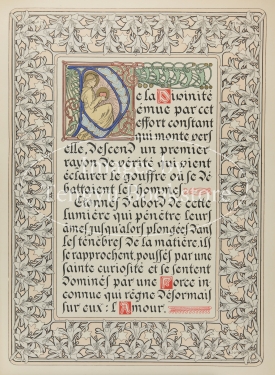 De la Divinité
émue par cet
effort constant
qui monte vers
elle, Descend un premier
rayon de vérité qui vient
éclairer le gouffre où se dé
battoient les hommes
Etonnés d'abord de cette
lumière qui pénètre leurs
âmes jusqu'alors plongées dans
les ténèbres de la matière, ils
se rapprochent, poussés par une
sainte curiosité et se sentent
Dominés par une Force in
connue qui règne désormais
sur eux : l'Amour.